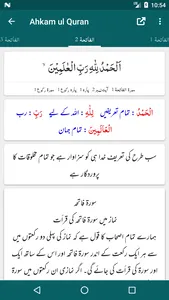 10:54
Ahkam ul Quran
الفاتحة 1
الفاتحة 2
اَلْحَمْدُ لِلّٰهِ رَبِّ الْعٰلَمِیْنَ
اَلْحَمْدُ : تمام تعریفیں لِلّٰهِ : اللہ کے لیے رَبِّ : رب
الْعَالَمِينَ : تمام جہان
سب طرح کی تعریف خدا ہی کو سزاوار ہے جو تمام مخلوقات کا
پروردگار ہے
سورۃ فاتحہ
نماز میں سورۃ فاتحہ کی قرأت
ہمارے تمام اصحاب کا قول ہے کہ نماز کی پہلی دو رکعتوں میں
سے ہر ایک رکعت کے اندر سورۃ فاتحہ اور اس کے ساتھ
ایک اور سورۃ کی قرأت کی جائے گی۔ اگر نمازی ان رکعتوں میں